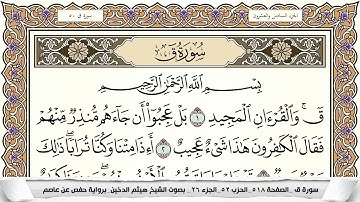 الجزء السادس والعشرون
سورة ق ٥٠
سُورَةُ قٓ
بِسْمِ ٱللَّهِ ٱلرَّحْمَٰنِ ٱلرَّحِيمِ
قٓ ۚ وَٱلْقُرْءَانِ ٱلْمَجِيدِ ١ بَلْ عَجِبُوٓا۟ أَن جَآءَهُم مُّنذِرٌ مِّنْهُمْ
فَقَالَ ٱلْكَٰفِرُونَ هَٰذَا شَىْءٌ عَجِيبٌ ٢ أَءِذَا مِتْنَا وَكُنَّا تُرَابًا ۖ ذَٰلِكَ
سورة ق _ الصفحة ٥١٨ _ الحزب ٥٢ _ الجزء ٢٦ _ بصوت الشيخ هيثم الدخين _ برواية حفص عن عاصم